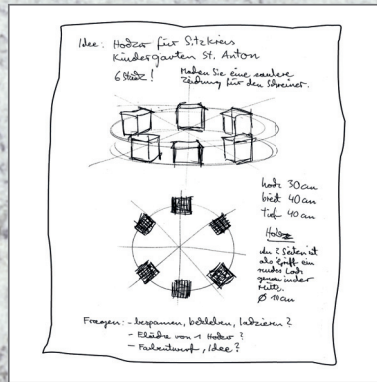 Idee: Hocker für Sitzkreis
Kindergarten St. Anton
6 Stück!
Machen Sie eine saubere
Zeichnung für den Schreiner.
hoch 30 cm
breit 40 cm
tief 40 cm
Hocker
An 2 Seiten ist
als Griff ein
rundes Loch
genau in der
Mitte.
Ø 10 cm
Fragen: - bespannen, bekleben, lackieren?
- Fläche von 1 Hocker?
- Farbentwurf, Idee?